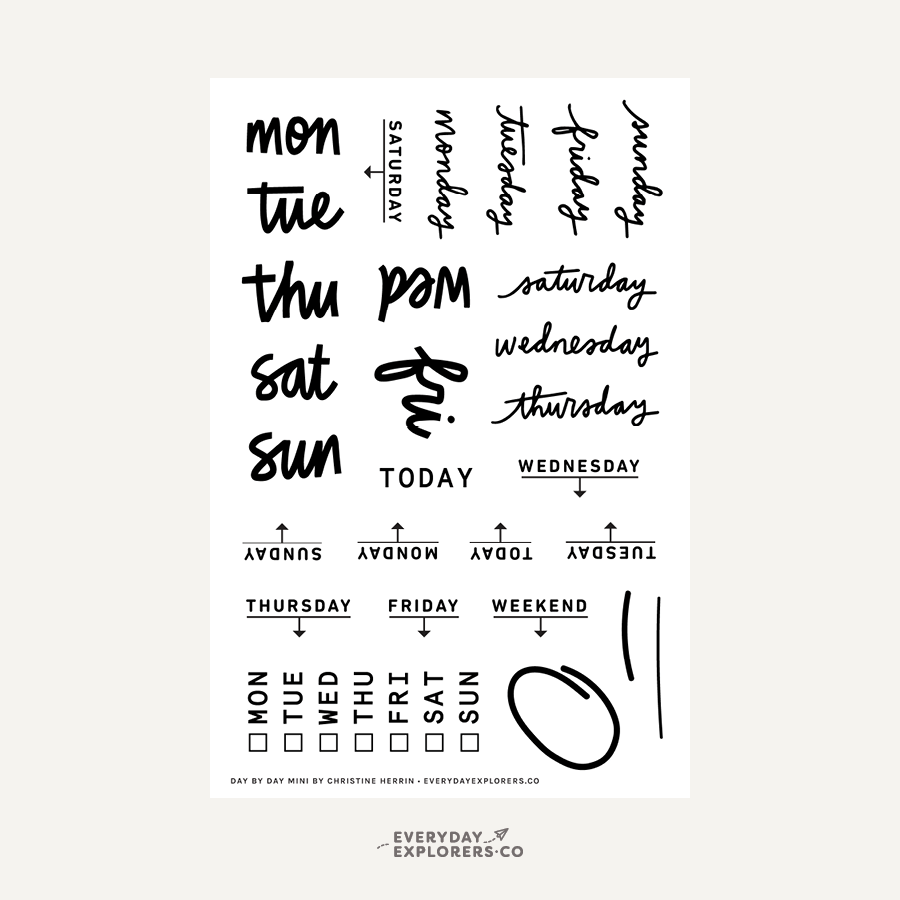 mon
tue
thu
sat
sun
SATURDAY
monday
tuesday
friday
sunday
wed
fri
saturday
wednesday
thursday
TODAY
WEDNESDAY
SUNDAY
MONDAY
TODAY
TUESDAY
THURSDAY
FRIDAY
WEEKEND
MON
TUE
WED
THU
FRI
SAT
SUN
DAY BY DAY MINI BY CHRISTINE HERRIN • EVERYDAYEXPLORERS.CO
EVERYDAY
EXPLORERS·CO